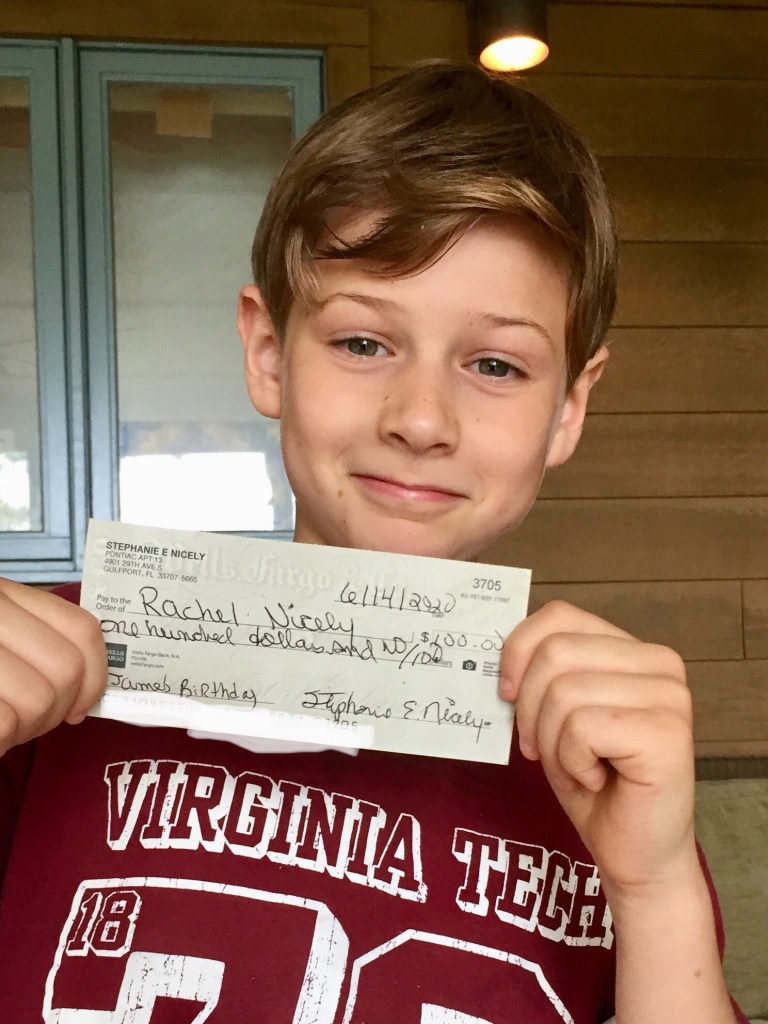 STEPHANIE E NICELY
PONTIAC APT 12
4901 29TH AVE S
GULFPORT, FL 33707-5665
Wells Fargo
3705
6/14/2020
Pay to the
Order of
Rachel Nicely
$ 100.00
one hundred dollars and NO/100
WELLS
FARGO
Wells Fargo Bank, N.A.
Florida
wellsfargo.com
James Birthday
Stephanie E. Nicely
VIRGINIA TECH
18